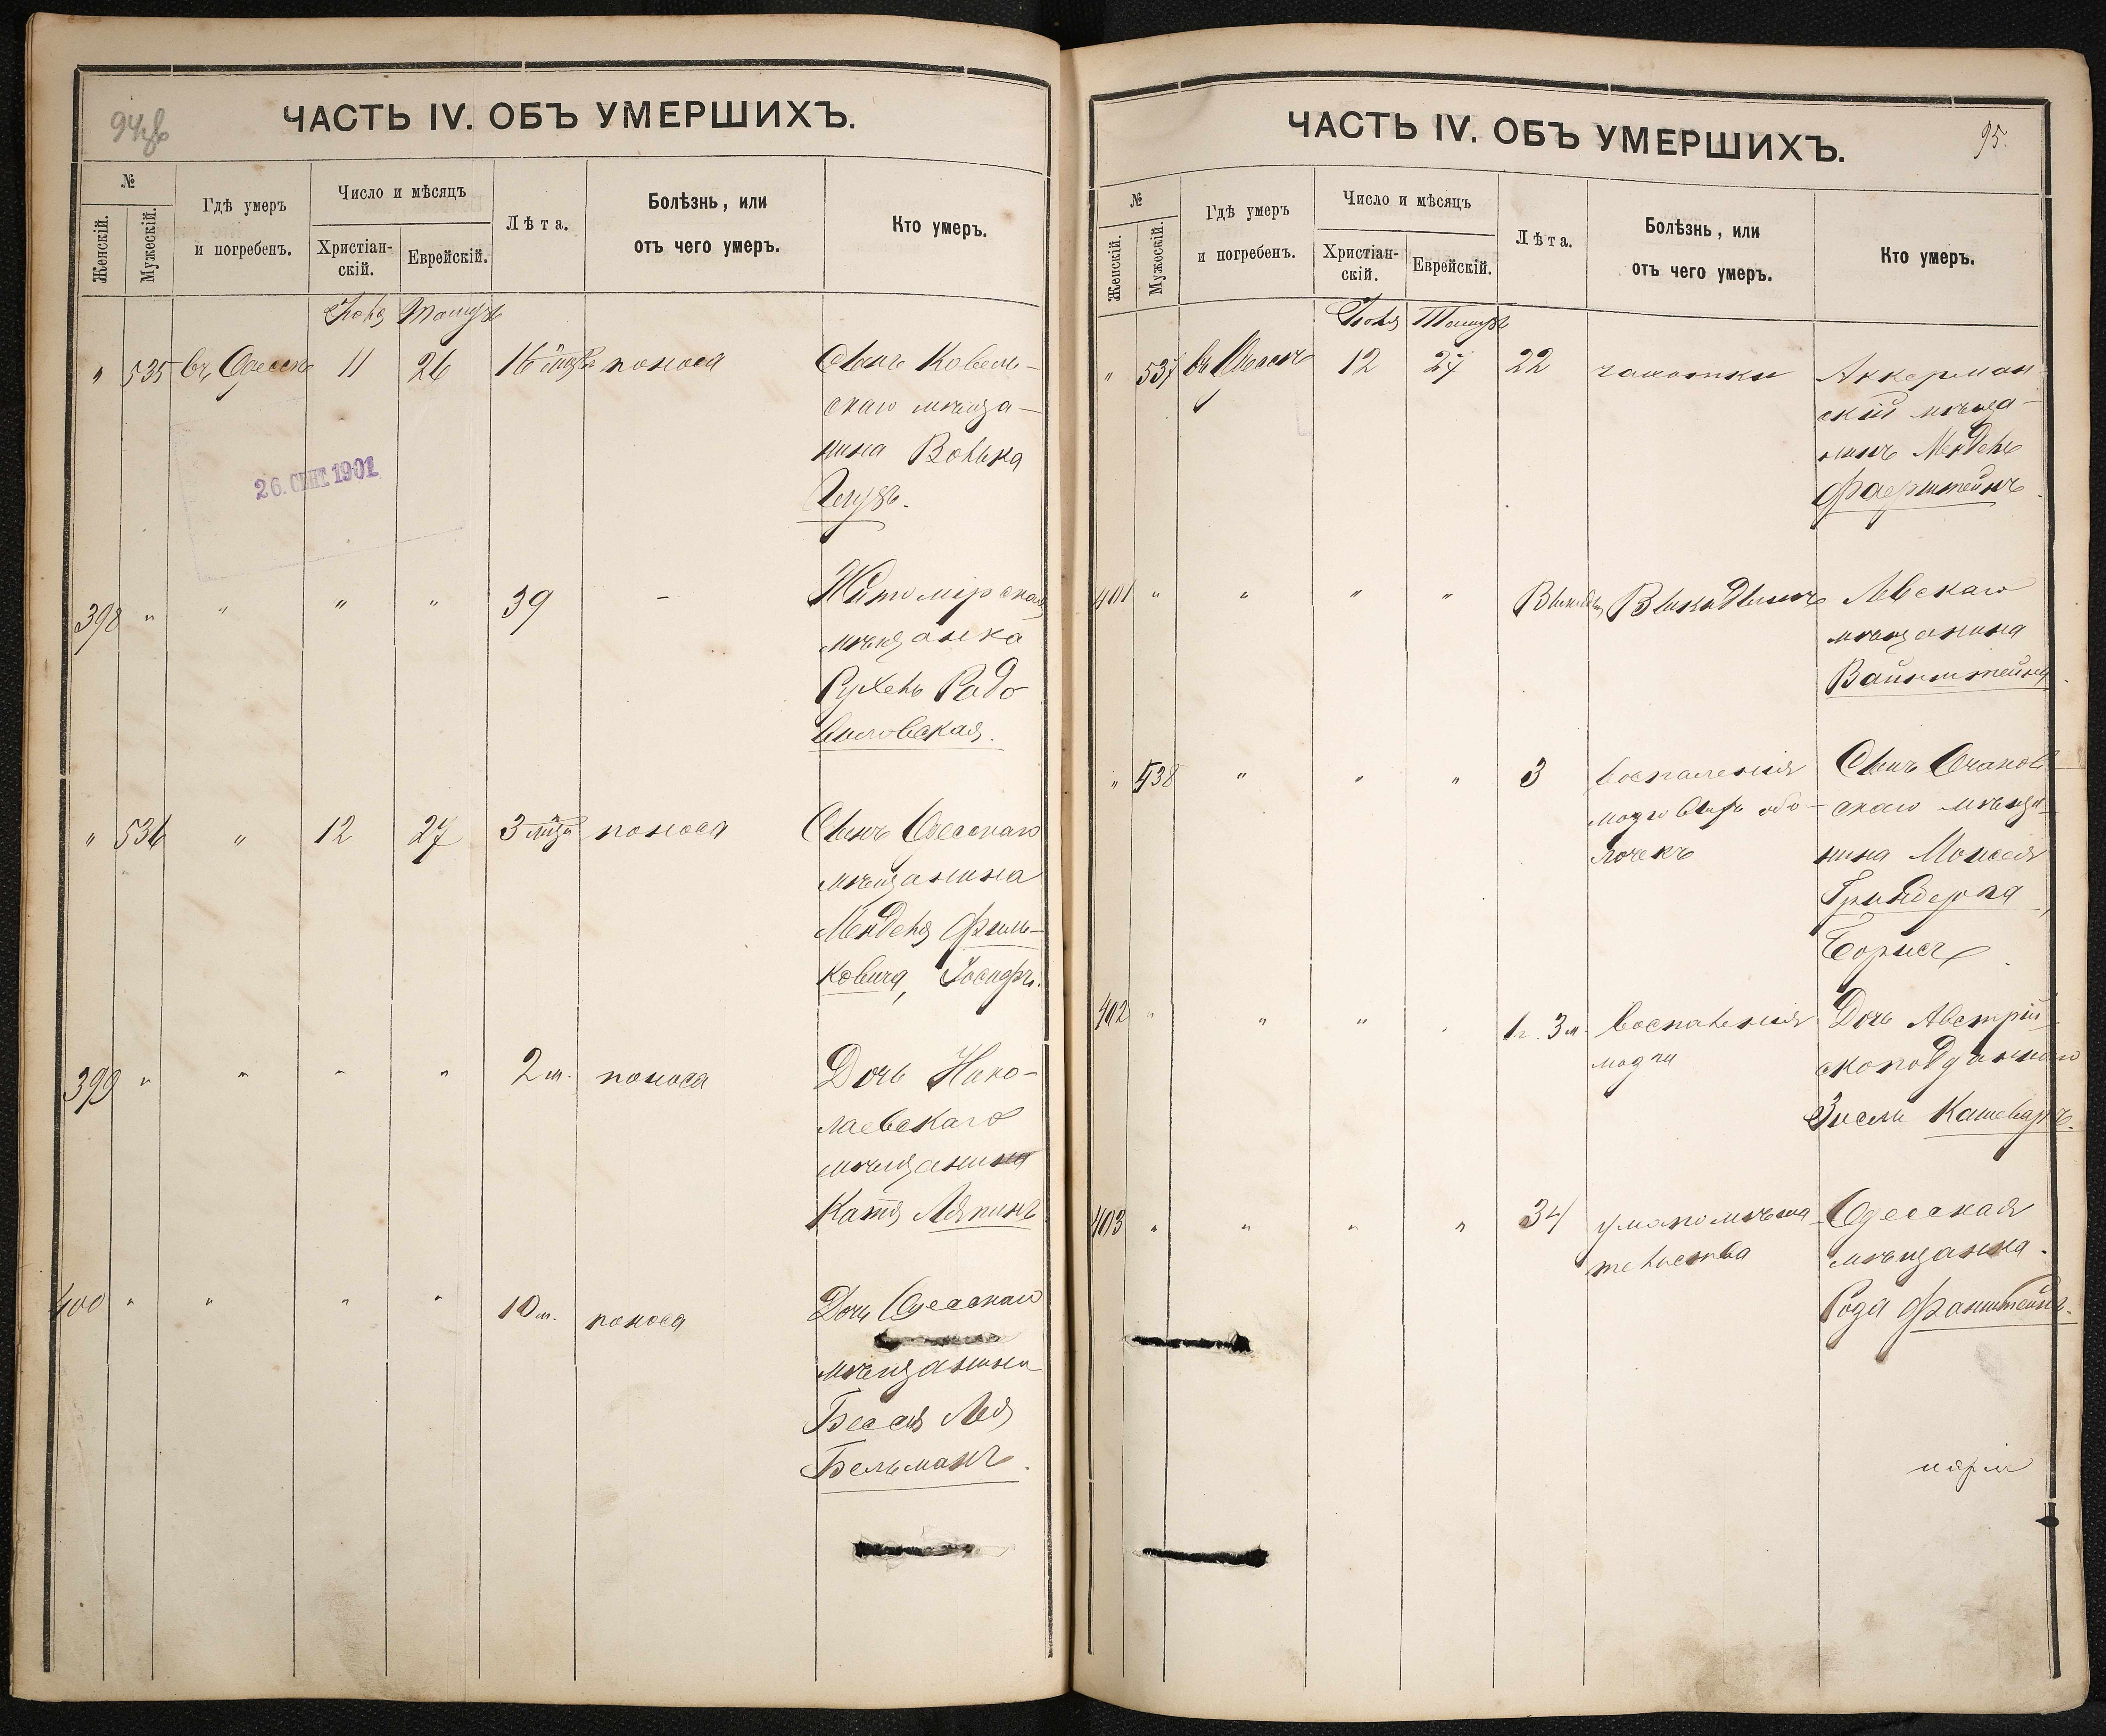 94об
ЧАСТЬ IV. ОБЪ УМЕРШИХЪ.
№
Женскій.
Мужескій.
Гдѣ умеръ
и погребенъ.
Число и мѣсяцъ
Христіан-
скій.
Еврейскій.
Лѣта.
Болѣзнь, или
отъ чего умеръ.
Кто умеръ.
Іюля Тамузъ
" 535 въ Одессѣ 11 26 16 поноса Сынъ Ковен-
скаго мѣща-
нина Волька
26. СЕНТ. 1901
398 " " " " 39 - Житомірская
мѣщанка
Рухель Радо-
виловская.
" 536 " 12 27 3 мѣц. поноса Сынъ Одесскаго
мѣщанина
Менделя Филь-
ковича, Іосифъ.
399 " " " " 2 м. поноса Дочь Нико-
лаевскаго
мѣщанина
Катя Ляпинъ
400 " " " " 10 м. поноса Дочь Одесскаго
мѣщанина
Бессія Лея
Бельманъ.
95.
ЧАСТЬ IV. ОБЪ УМЕРШИХЪ.
№
Женскій.
Мужескій.
Гдѣ умеръ
и погребенъ.
Число и мѣсяцъ
Христіан-
скій.
Еврейскій.
Лѣта.
Болѣзнь, или
отъ чего умеръ.
Кто умеръ.
Іюля Тамузъ
" 537 въ Одессѣ 12 27 22 чахотки Аккерман-
скій мѣща-
нинъ Мендель
Фаерштейнъ.
401 " " " " Выкидышъ мѣщанина
Вайнштейна.
" 538 " " " 3 воспаленія Сынъ Очаков-
мозговыхъ обо- скаго мѣща-
лочекъ нина Моисея
Гринберга,
Борисъ.
402 " " " " 1 г. 3 м. воспаленія Дочь Австрій-
мозга скоподданнаго
Зисли Кашеваръ.
403 " " " " 34 умопомѣша- Одесская
тельства мѣщанка
Роза Фанштейнъ.